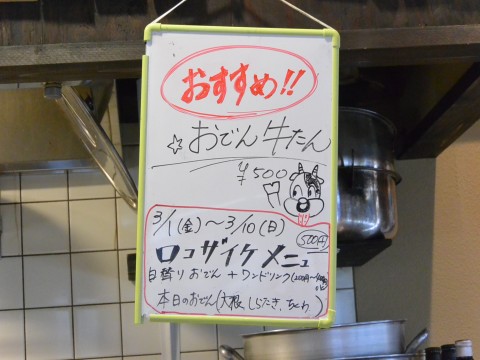 おすすめ!!
☆おでん牛たん
¥500
3/1(金)〜3/10(日)
ロコザイケメニュ
500円
日替りおでん+ワンドリンク
本日のおでん(大根、しらたき、ちくわ)